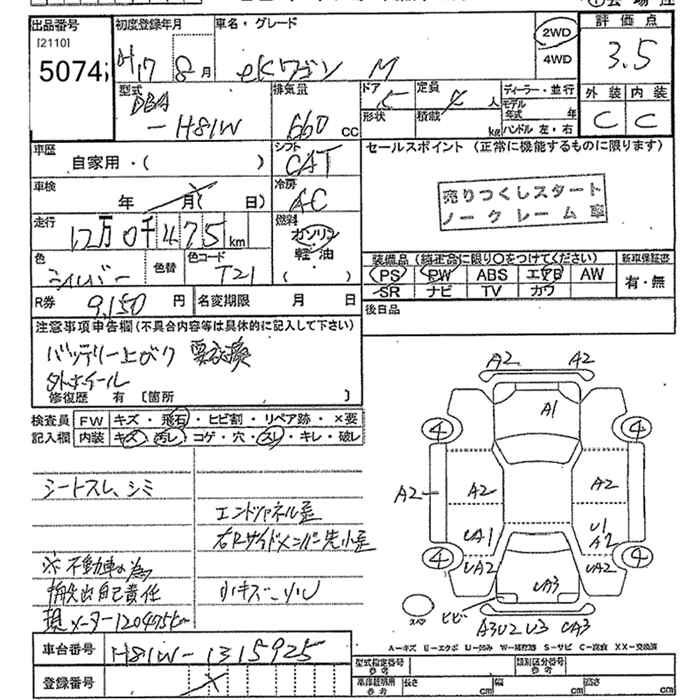 出品番号
[2110]
5074
初度登録年月
H17 8月
車名・グレード
eKワゴン M
2WD
4WD
評価点
3.5
外装 内装
C C
型式
DBA
-H81W
排気量
660 CC
ドア 5
形状
定員 4 人
積載 kg
ディーラー・並行
モデル年式 年
ハンドル 左・右
車歴
自家用・( )
シフト
CAT
セールスポイント (正常に機能するものに限ります)
売りつくしスタート
ノークレーム車
車検
年 月( 日)
冷房
AC
走行
12万0千475km
燃料
ガソリン
軽・油
( )
色
シルバー
色替
色コード
T21
装備品 (純正品に限り○をつけてください)
PS PW ABS エアB AW
SR ナビ TV カワ
新車保証書
有・無
R券 9,150 円
名変期限 月 日
後日品
注意事項申告欄(不具合内容等は具体的に記入して下さい)
バッテリー上がり 要交換
外ホイール
修復歴 有 [箇所 ]
検査員
記入欄
FW キズ・飛石・ヒビ割・リペア跡・×要
内装 キズ・汚レ・コゲ・穴・スレ・キレ・破レ
シートスレ、シミ
エンドパネル歪
右Rサイドメンバー先小歪
※不動車の為
搬出自己責任
現メーター120475km
小キズ・小U
A2 A2
A1
4 4
A2 A2 A2
UA1 U1
A2
4 UA2 UA2 4
UA3
スペア
ヒビ
A3U2 U3 UA3
A-キズ E-エクボ U-凹み W-補修跡 S-サビ C-腐食 XX-交換済
車台番号
H81W-1315925
登録番号
型式指定番号
参考
類別区分番号
参考
車庫証明用
参考
長さ cm
幅 cm
高さ cm